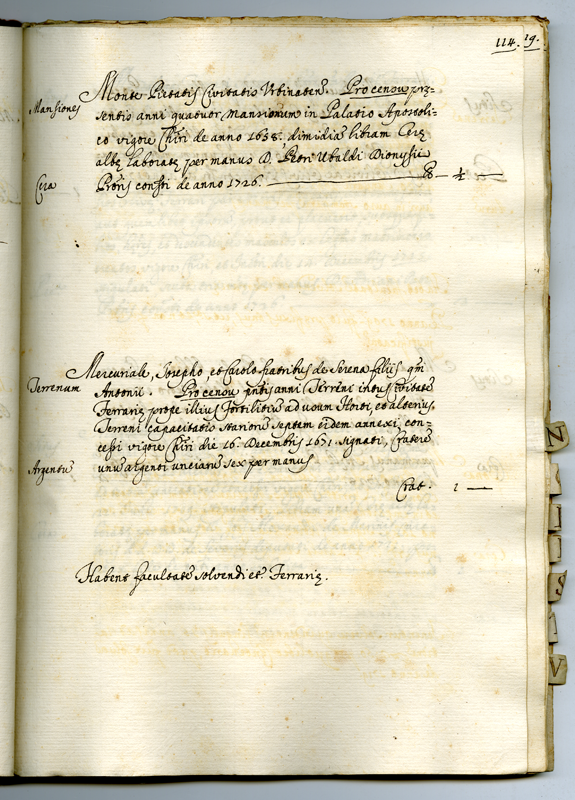 114. 19.
Monte Pietatis Civitatis Urbinaten. Pro censu præ=
Mansiones
sentis anni quatuor Mansionum in Palatio Apostoli=
co vigore Chiri de anno 1658. dimidia libram Ceræ
albæ laboratæ per manus D. Petri Ubaldi Dionysii
Cera
de anno 1726. — ½ —
Mercuriale, Josepho, et Carolo fratribus de Serena filiis qm
Terrenum
Antonii. Pro censu pntis anni Terreni intus Civitatē
Ferrariæ prope illius Fortilitiū ad usum Horti, et alterius
Terreni capacitatis Starior septem eidem annexi, con=
cessi vigore Chiri die 16. Decembris 1671. signati, Craterē
Argentū
unū argenti unciarum sex per manus
Crat. 1 —
Habent facultatē solvendi et Ferrariæ.
N
V